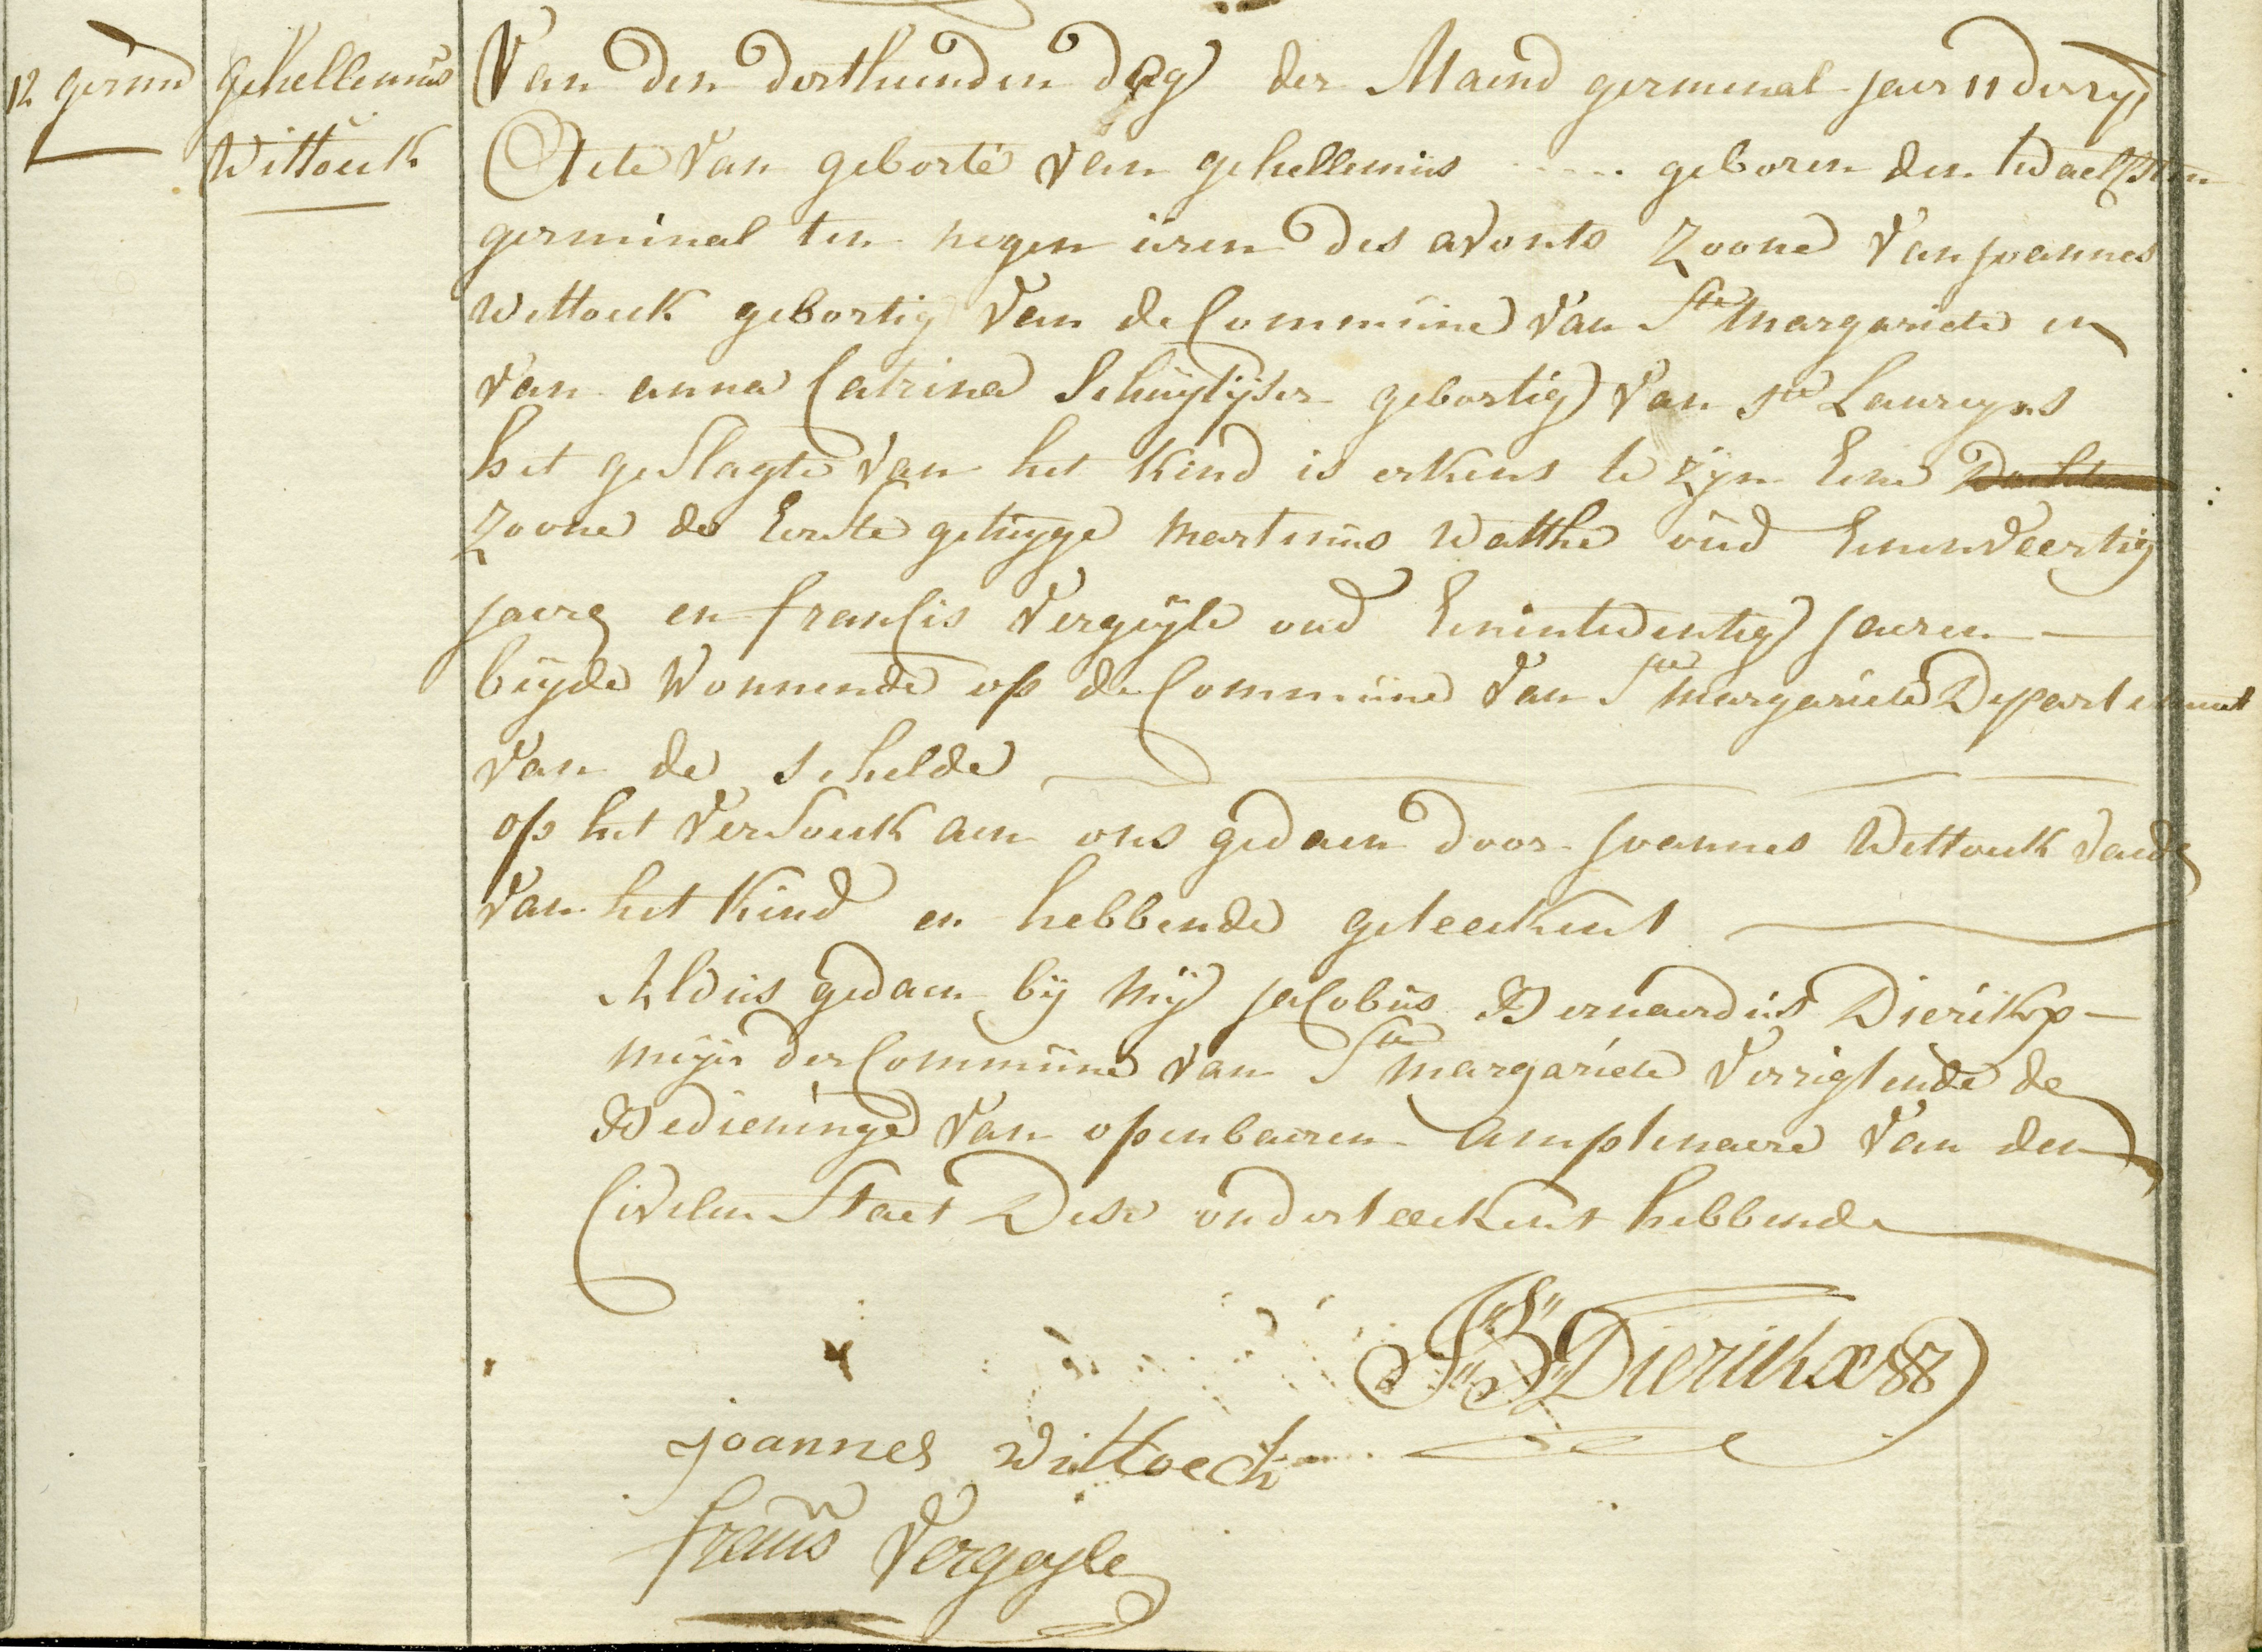 12 germ
gehellemus
Wittouk
Van den derthienden dag der Maend germinal jaer 11 der rep
Acte van geborte van gehellemus .... geboren den twaelfsten
germinal ten negen uren des avonts Zoone van joannes
Wittouk gebortig van de Commune van Ste margariete en
van anna Catrina Schuytijser gebortig van Ste Laureyns
het geslagte van het kind is erkens te zijn Eene Dochter
Zoone de Eerste getuyge martinus Watthe oud Eenenveertig
jaere en francis Vergeyle oud Eenentwentig jaeren
beyde Wonnende op de Commune van Ste margariete Departement
van de schelde
op het Versouk aen ons gedaen door joannes Wittouk vaeder
van het kind en hebbende geteekent
Aldus gedaen bij mij jacobus Bernaerdus Dierikx
meyer der Commune van Ste margariete Verrigtende de
Bedieninge van openbaeren amptenaere van den
Civilen Staet Dese onderteekent hebbende
J B Dierickx
joannes wittoeck
frans Vergeyle